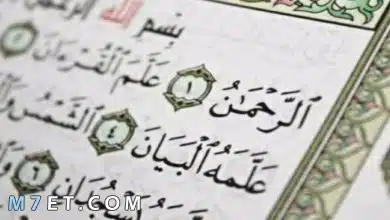 بِسْمِ ٱللَّهِ
ٱلرَّحْمَٰنُ ١ عَلَّمَ ٱلْقُرْءَانَ ٢
عَلَّمَهُ ٱلْبَيَانَ ٤ ٱلشَّمْسُ
٦
M7ET.COM